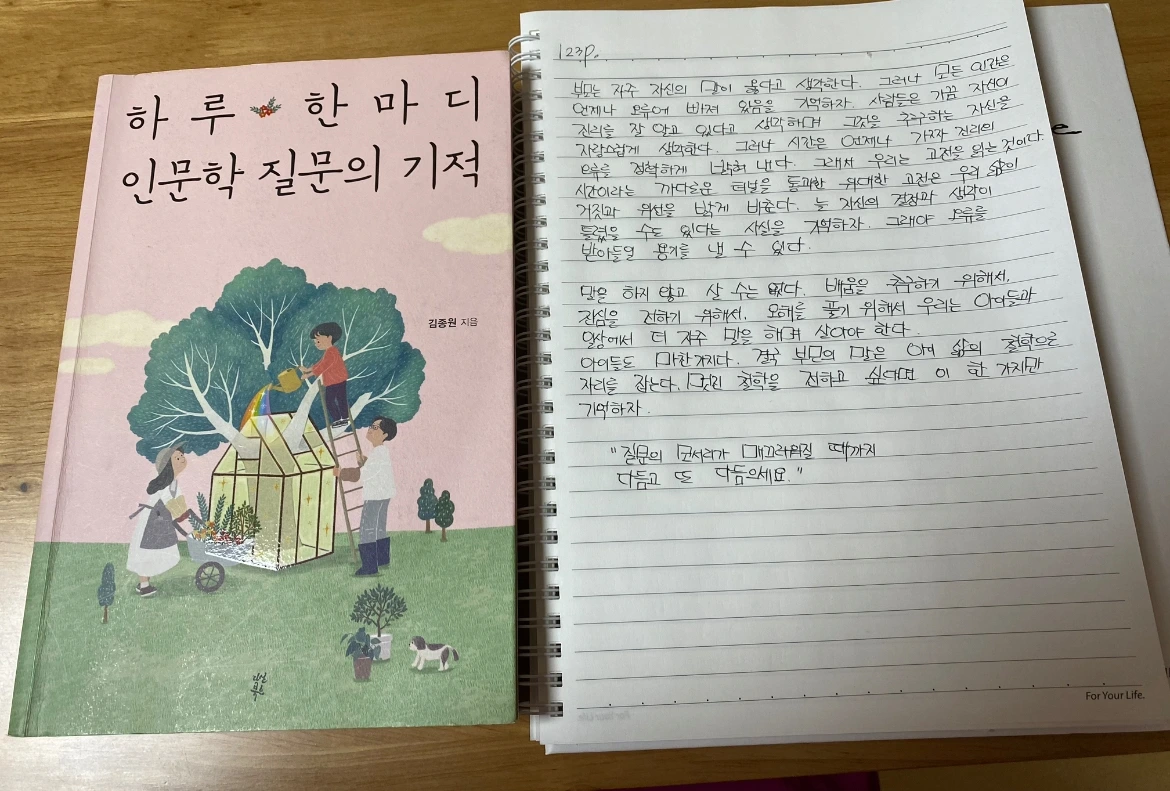 하루 한마디
인문학 질문의 기적
김종원 지음
123p.
부모는 자주 자신의 말이 옳다고 생각한다. 그러나 모든 인간은
언제나 오류에 빠져 있음을 기억하자. 사람들은 가끔 자신이
진리를 잘 알고 있다고 생각하며 그것을 추구하는 자신을
자랑스럽게 생각한다. 그러나 시간은 언제나 가짜 진리의
오류를 정확하게 밝혀 낸다. 그래서 우리는 고전을 읽는 것이다.
시간이라는 까다로운 터널을 통과한 위대한 고전은 우리 삶의
거짓과 위선을 밝게 비춘다. 늘 자신의 결정과 생각이
틀렸을 수도 있다는 사실을 기억하자. 그래야 오류를
받아들일 용기를 낼 수 있다.
말은 하지 않고 살 수는 없다. 배움을 추구하기 위해서,
진심을 전하기 위해서, 오해를 풀기 위해서 우리는 아이들과
일상에서 더 자주 말을 하며 살아야 한다.
아이들도 마찬가지다. 결국 부모의 말은 아이 삶의 철학으로
자리를 잡는다. 멋진 철학을 전하고 싶다면 이 한 가지만
기억하자.
"질문의 모서리가 매끄러워질 때까지
다듬고 또 다듬으세요."
For Your Life.